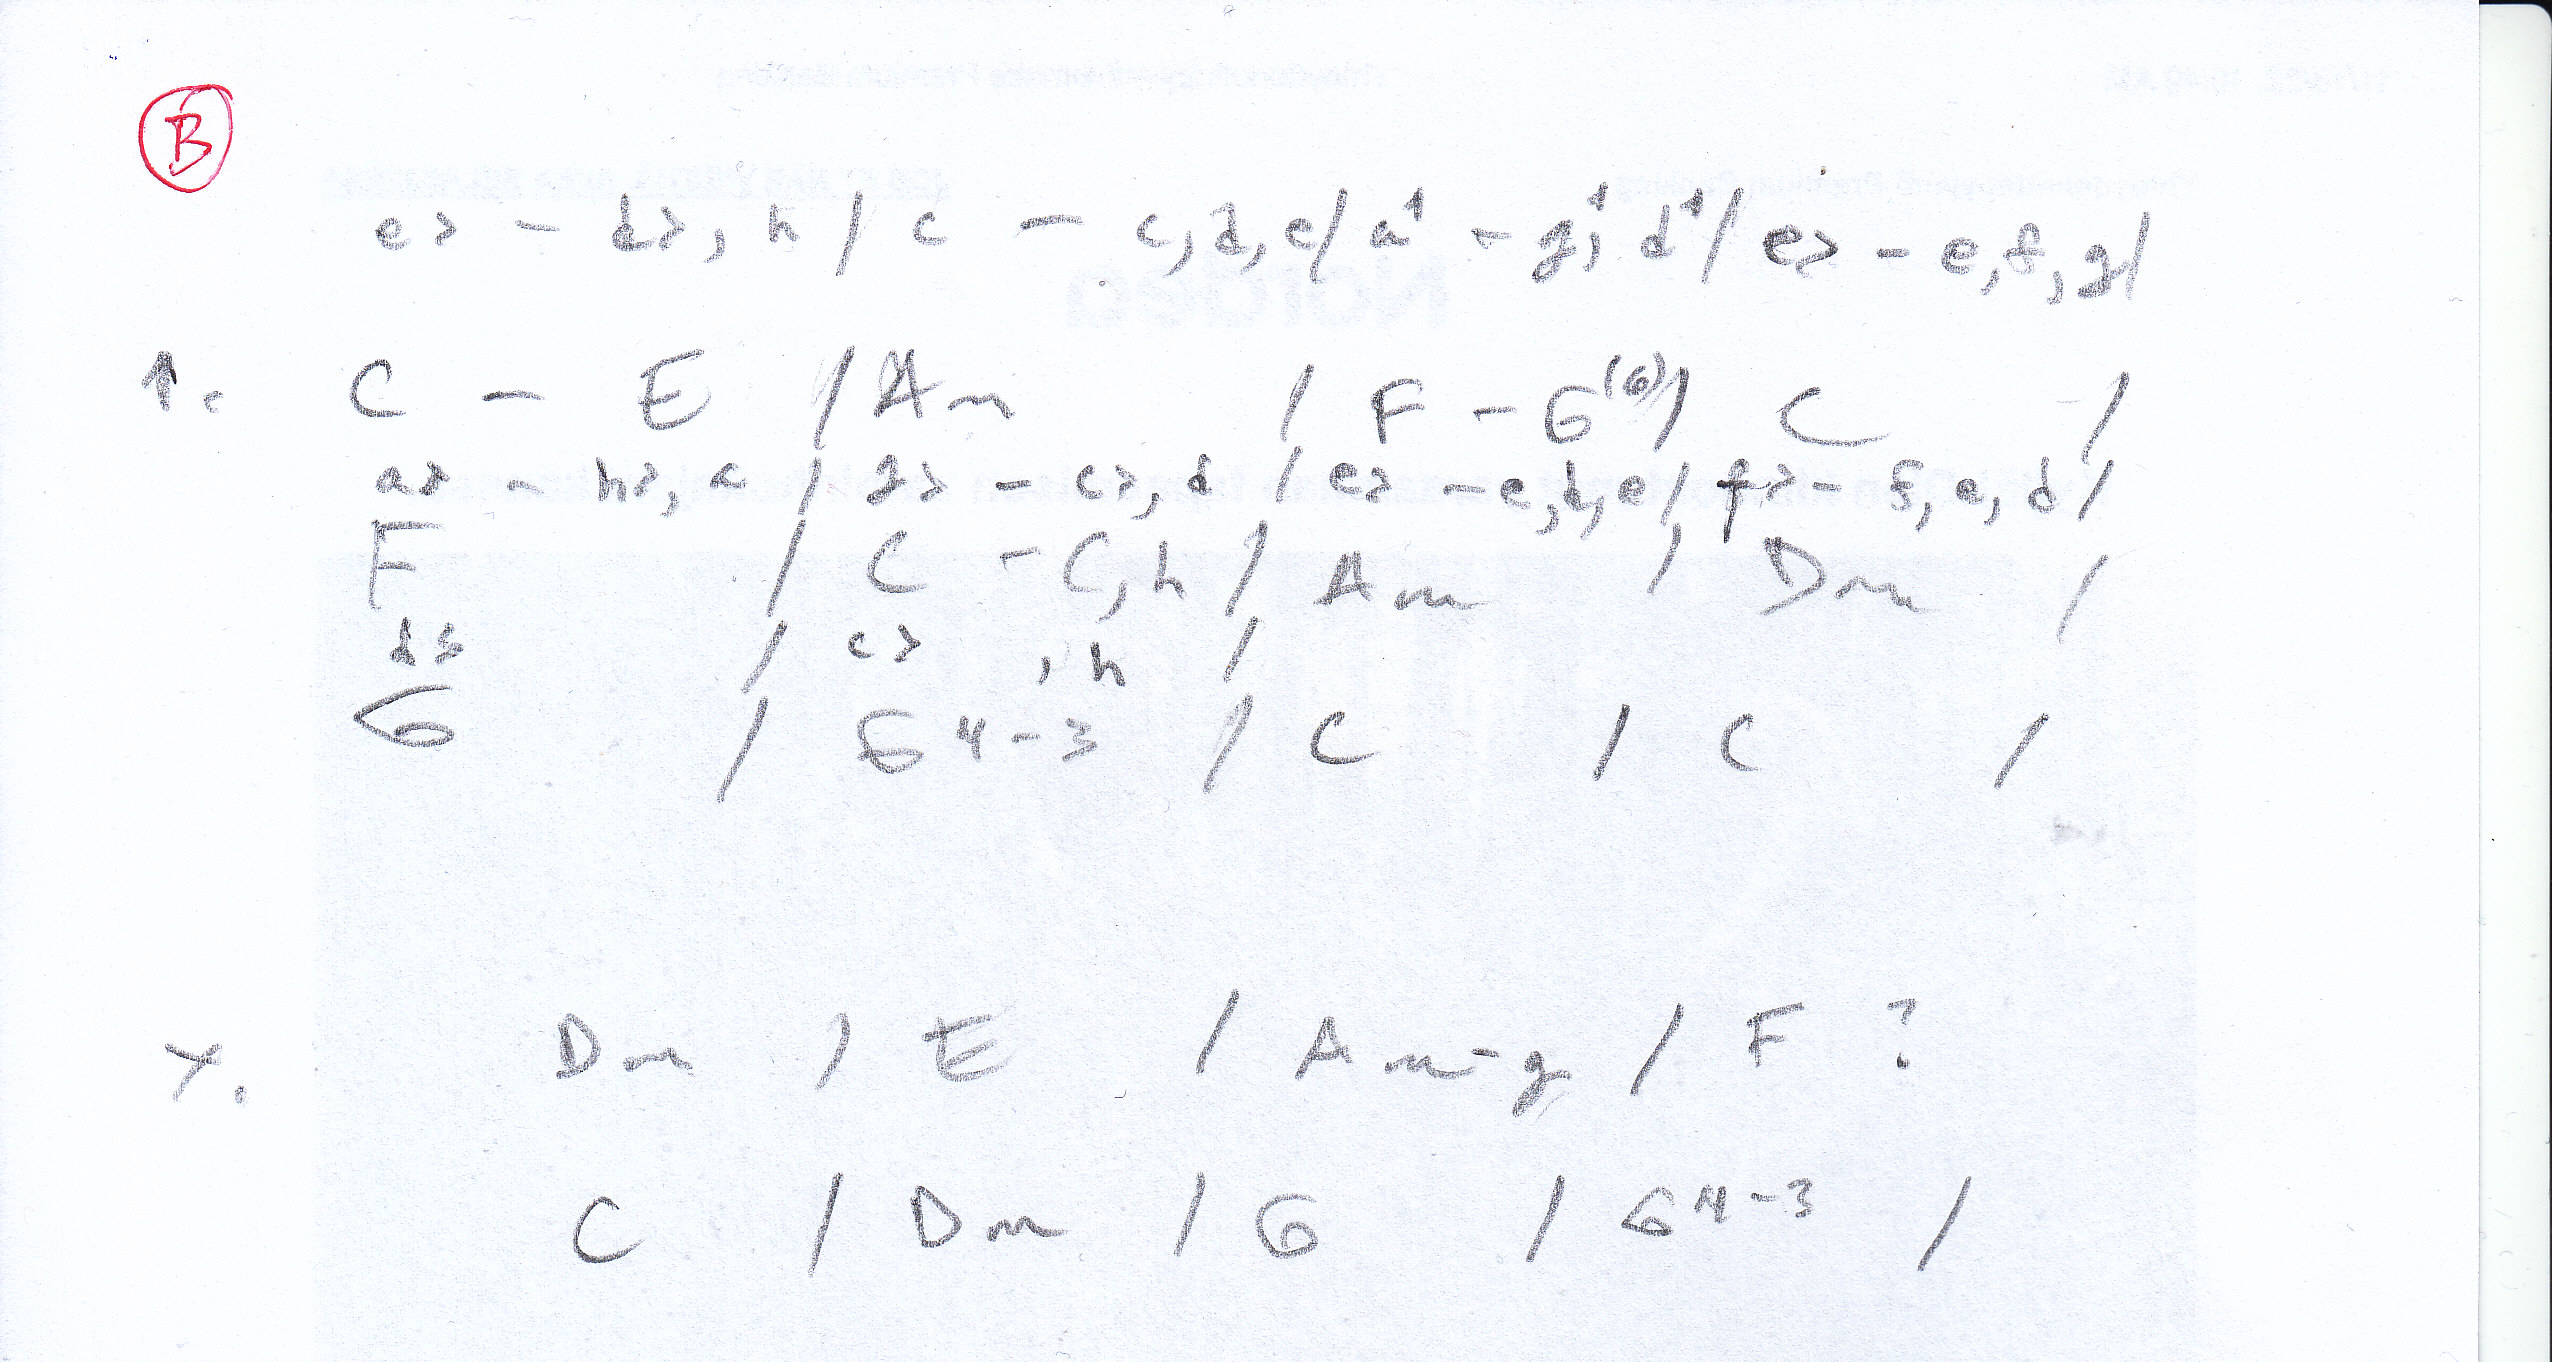 B
e> - d>, h / c - c, d, e / a¹ - g¹, d¹ / e> - e, f, g /
1. C - E / Am / F - G(6) / C /
a> - h>, a / g> - c>, d / e> - e, d, e / f> - f, e, d /
F / C - C, h / Am / Dm /
d> / c> , h /
G / G 4-3 / C / C /
Y. Dm / E / Am - g / F ?
C / Dm / G / G 4-3 /